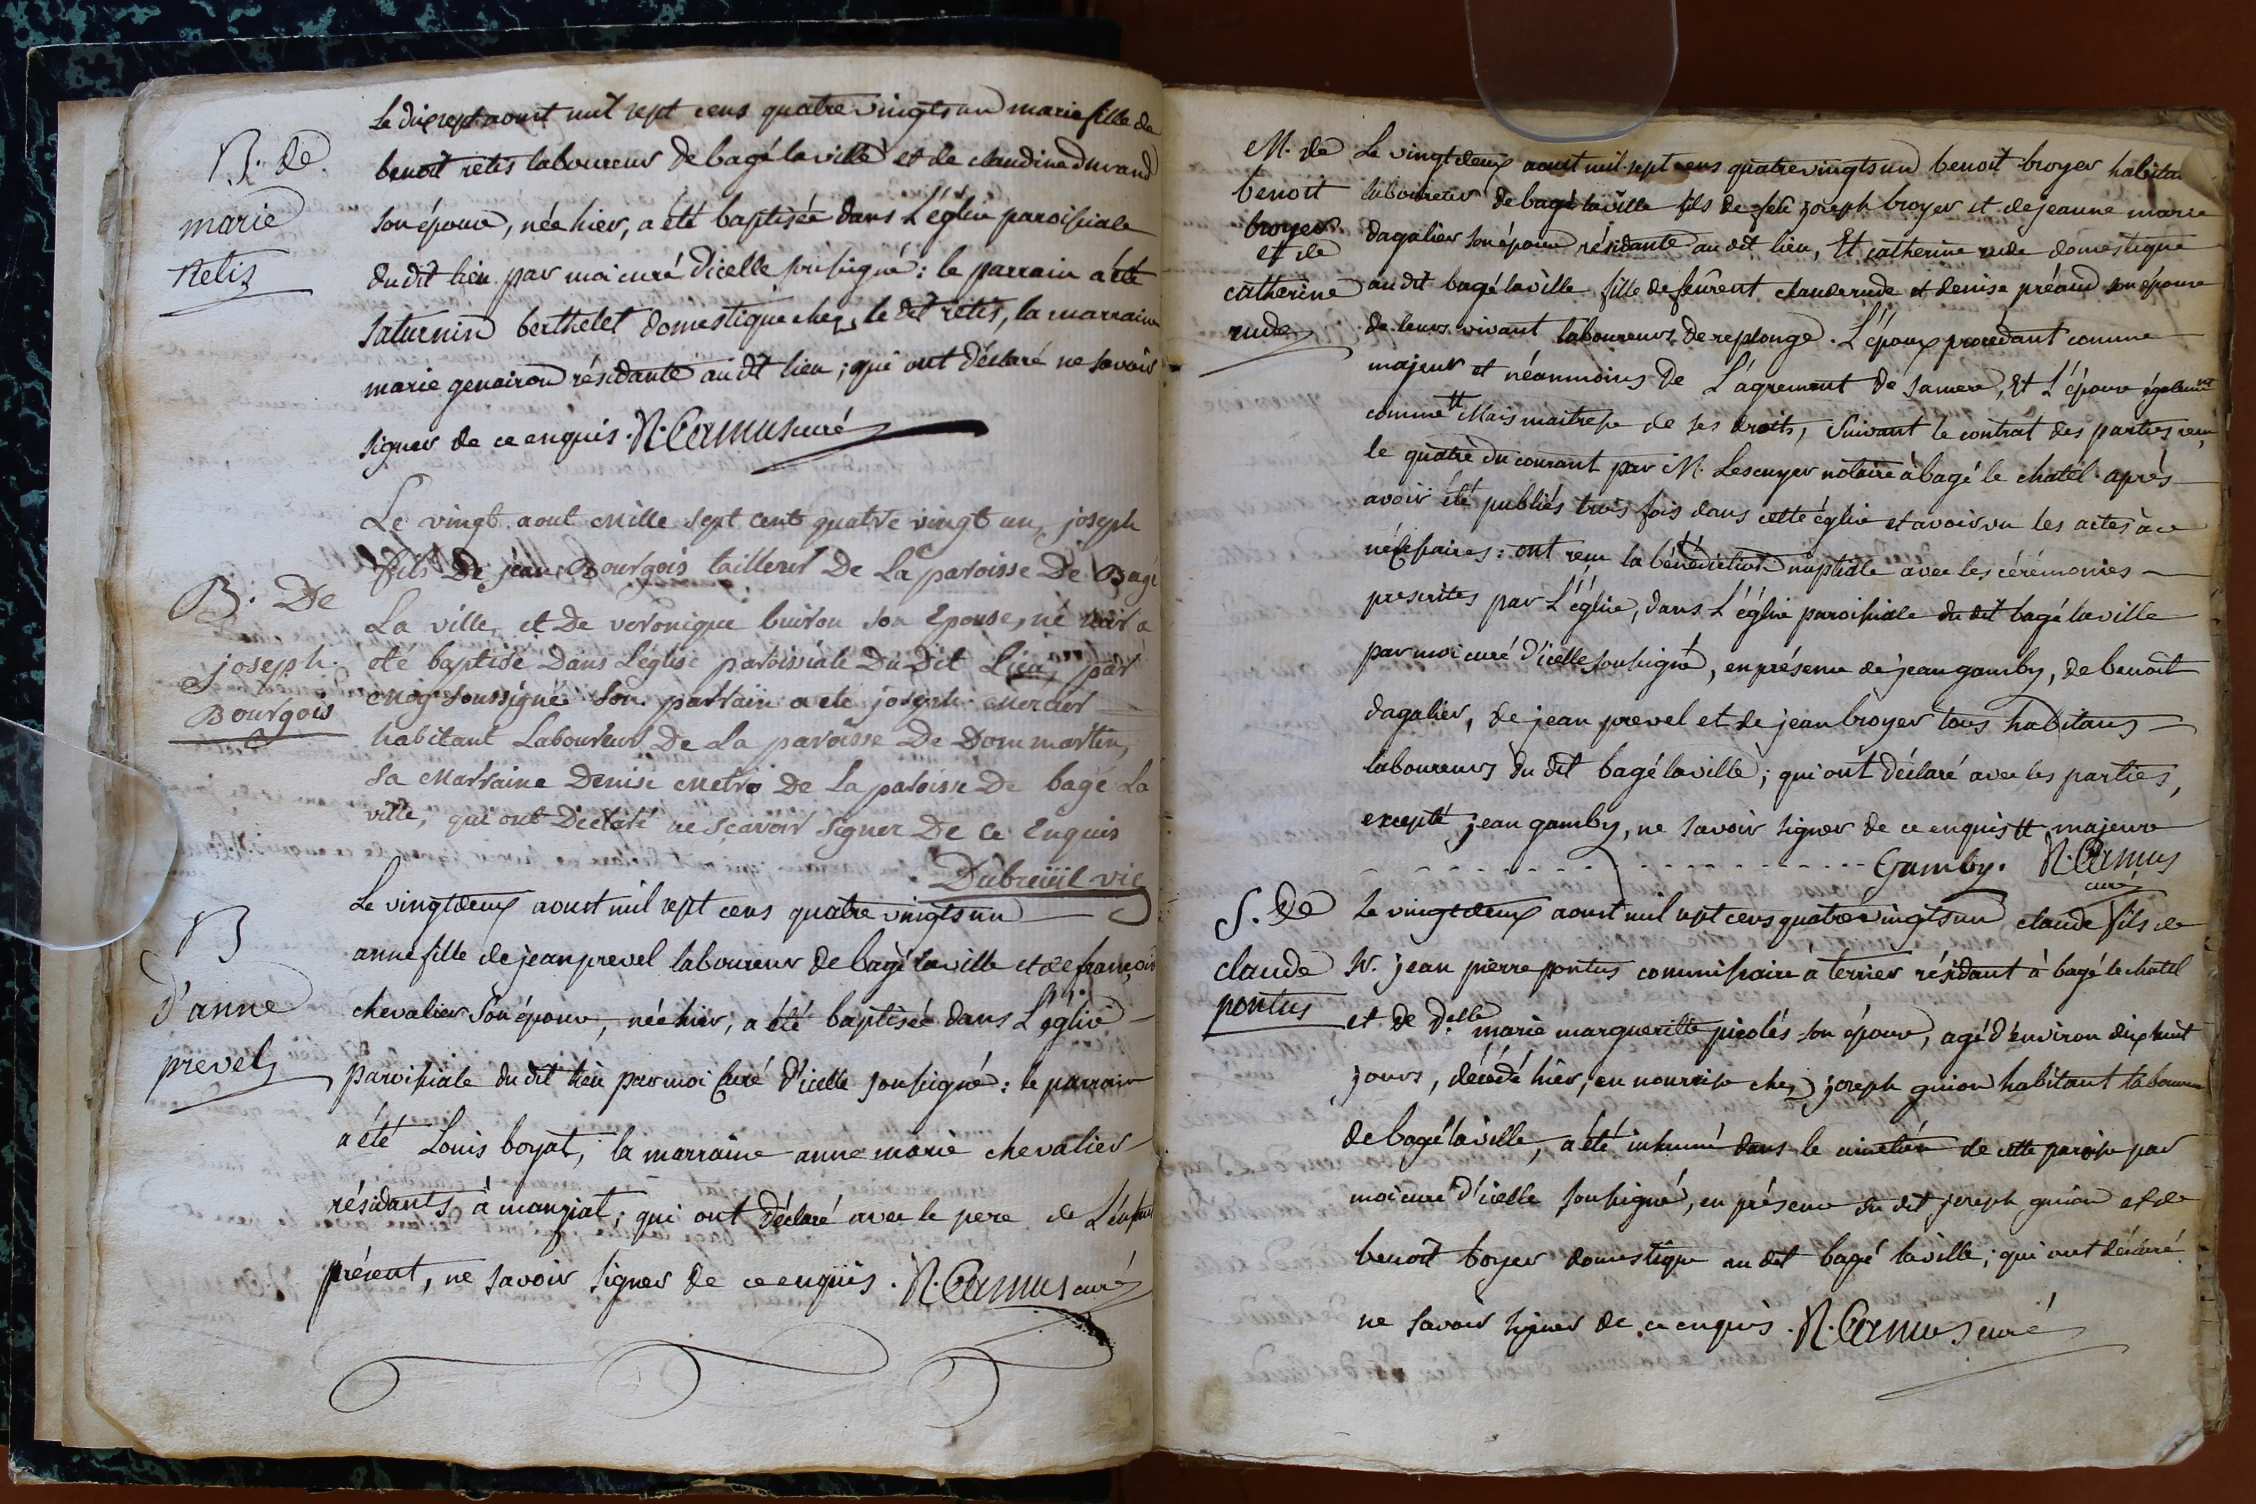 Le dixsept aoust mil sept cens quatre vingts un marie fille de
B. de
benoit retis laboureur de bagé la ville et de claudine durand
marie
son épouse, née hier, a été baptisée dans L'église paroissiale
Retis
du dit lieu par moi curé d'icelle soussigné : le parrain a été
saturnin berthelet domestique chez le dit retis, la marraine
marie genairon résidante au dit lieu ; qui ont déclaré ne savoir
signer de ce enquis. N. Camus curé

Le vingt aout mille sept cent quatre vingt un, joseph
fils De jean Bourgois tailleur De La paroisse De Bagé
B. De
La ville et De veronique buiron son Epouse, né hier a
joseph
eté baptisé Dans L'église paroissiale Du Dit Lieu par
Bourgois
moy soussigné son parrain a eté joseph mercier
habitant Laboureur De La paroisse De Dommartin,
sa Marraine Denise Metra De La paroisse De bagé La
ville, qui ont Déclaré ne sçavoir signer De Ce Enquis
Dubreüil vic

Le vingt deux aoust mil sept cens quatre vingts un
B
anne fille de jean prevel laboureur de bagé la ville et de françoise
d'anne
chevalier son épouse, née hier, a été baptisée dans L'église
prevel
paroissiale du dit lieu par moi Curé d'icelle soussigné : le parrain
a été Louis boyat, la marraine anne marie chevalier
résidants à manziat ; qui ont déclaré avec le pere de L'enfant
présent, ne savoir signer de ce enquis. N. Camus curé

M. de
benoit
broyer
et de
catherine
rude
Le vingt deux aoust mil sept cens quatre vingts un benoit broyer habitan
laboureur de bagé la ville fils de feu joseph broyer et de jeanne marie
dagalier son épouse résidante au dit lieu, Et catherine rude domestique
au dit bagé la ville fille de feurent claude rude et denise préaud son épouse
de leurs vivant laboureurs de replonge. L'époux procedant comme
majeur et néanmoins de L'agrement de sa mere, Et L'épouse également
comme tt Mais maitresse de ses droits, Suivant le contrat des parties reçu
le quatre du courant par M. Lescuyer notaire à bagé le chatel après
avoir été publiés trois fois dans cette église et avoir vu les actes à ce
nécessaires : ont reçu la bénédiction nuptiale avec les cérémonies
prescrites par L'église, dans L'église paroissiale du dit bagé la ville
par moi curé d'icelle soussigné, en présence de jean gamby, de benoit
dagalier, de jean prevel et de jean broyer tous habitans
laboureurs du dit bagé la ville ; qui ont déclaré avec les parties,
excepté jean gamby, ne savoir signer de ce enquis tt majeure
Gamby. N. Camus
curé

S. de
claude
pontus
Le vingt deux aoust mil sept cens quatre vingts un claude fils de
Sr. jean pierre pontus commissaire à terrier résidant à bagé le chatel
et de Delle marie margueritte picolés son épouse, agé d'environ dix huit
jours, décédé hier, en nourrisse chez joseph guion habitant laboureur
de bagé la ville, a été inhumé dans le cimetière de cette paroisse par
moi curé d'icelle soussigné, en présence du dit joseph guion et de
benoit boyer domestique au dit bagé la ville ; qui ont déclaré
ne savoir signer de ce enquis. N. Camus curé